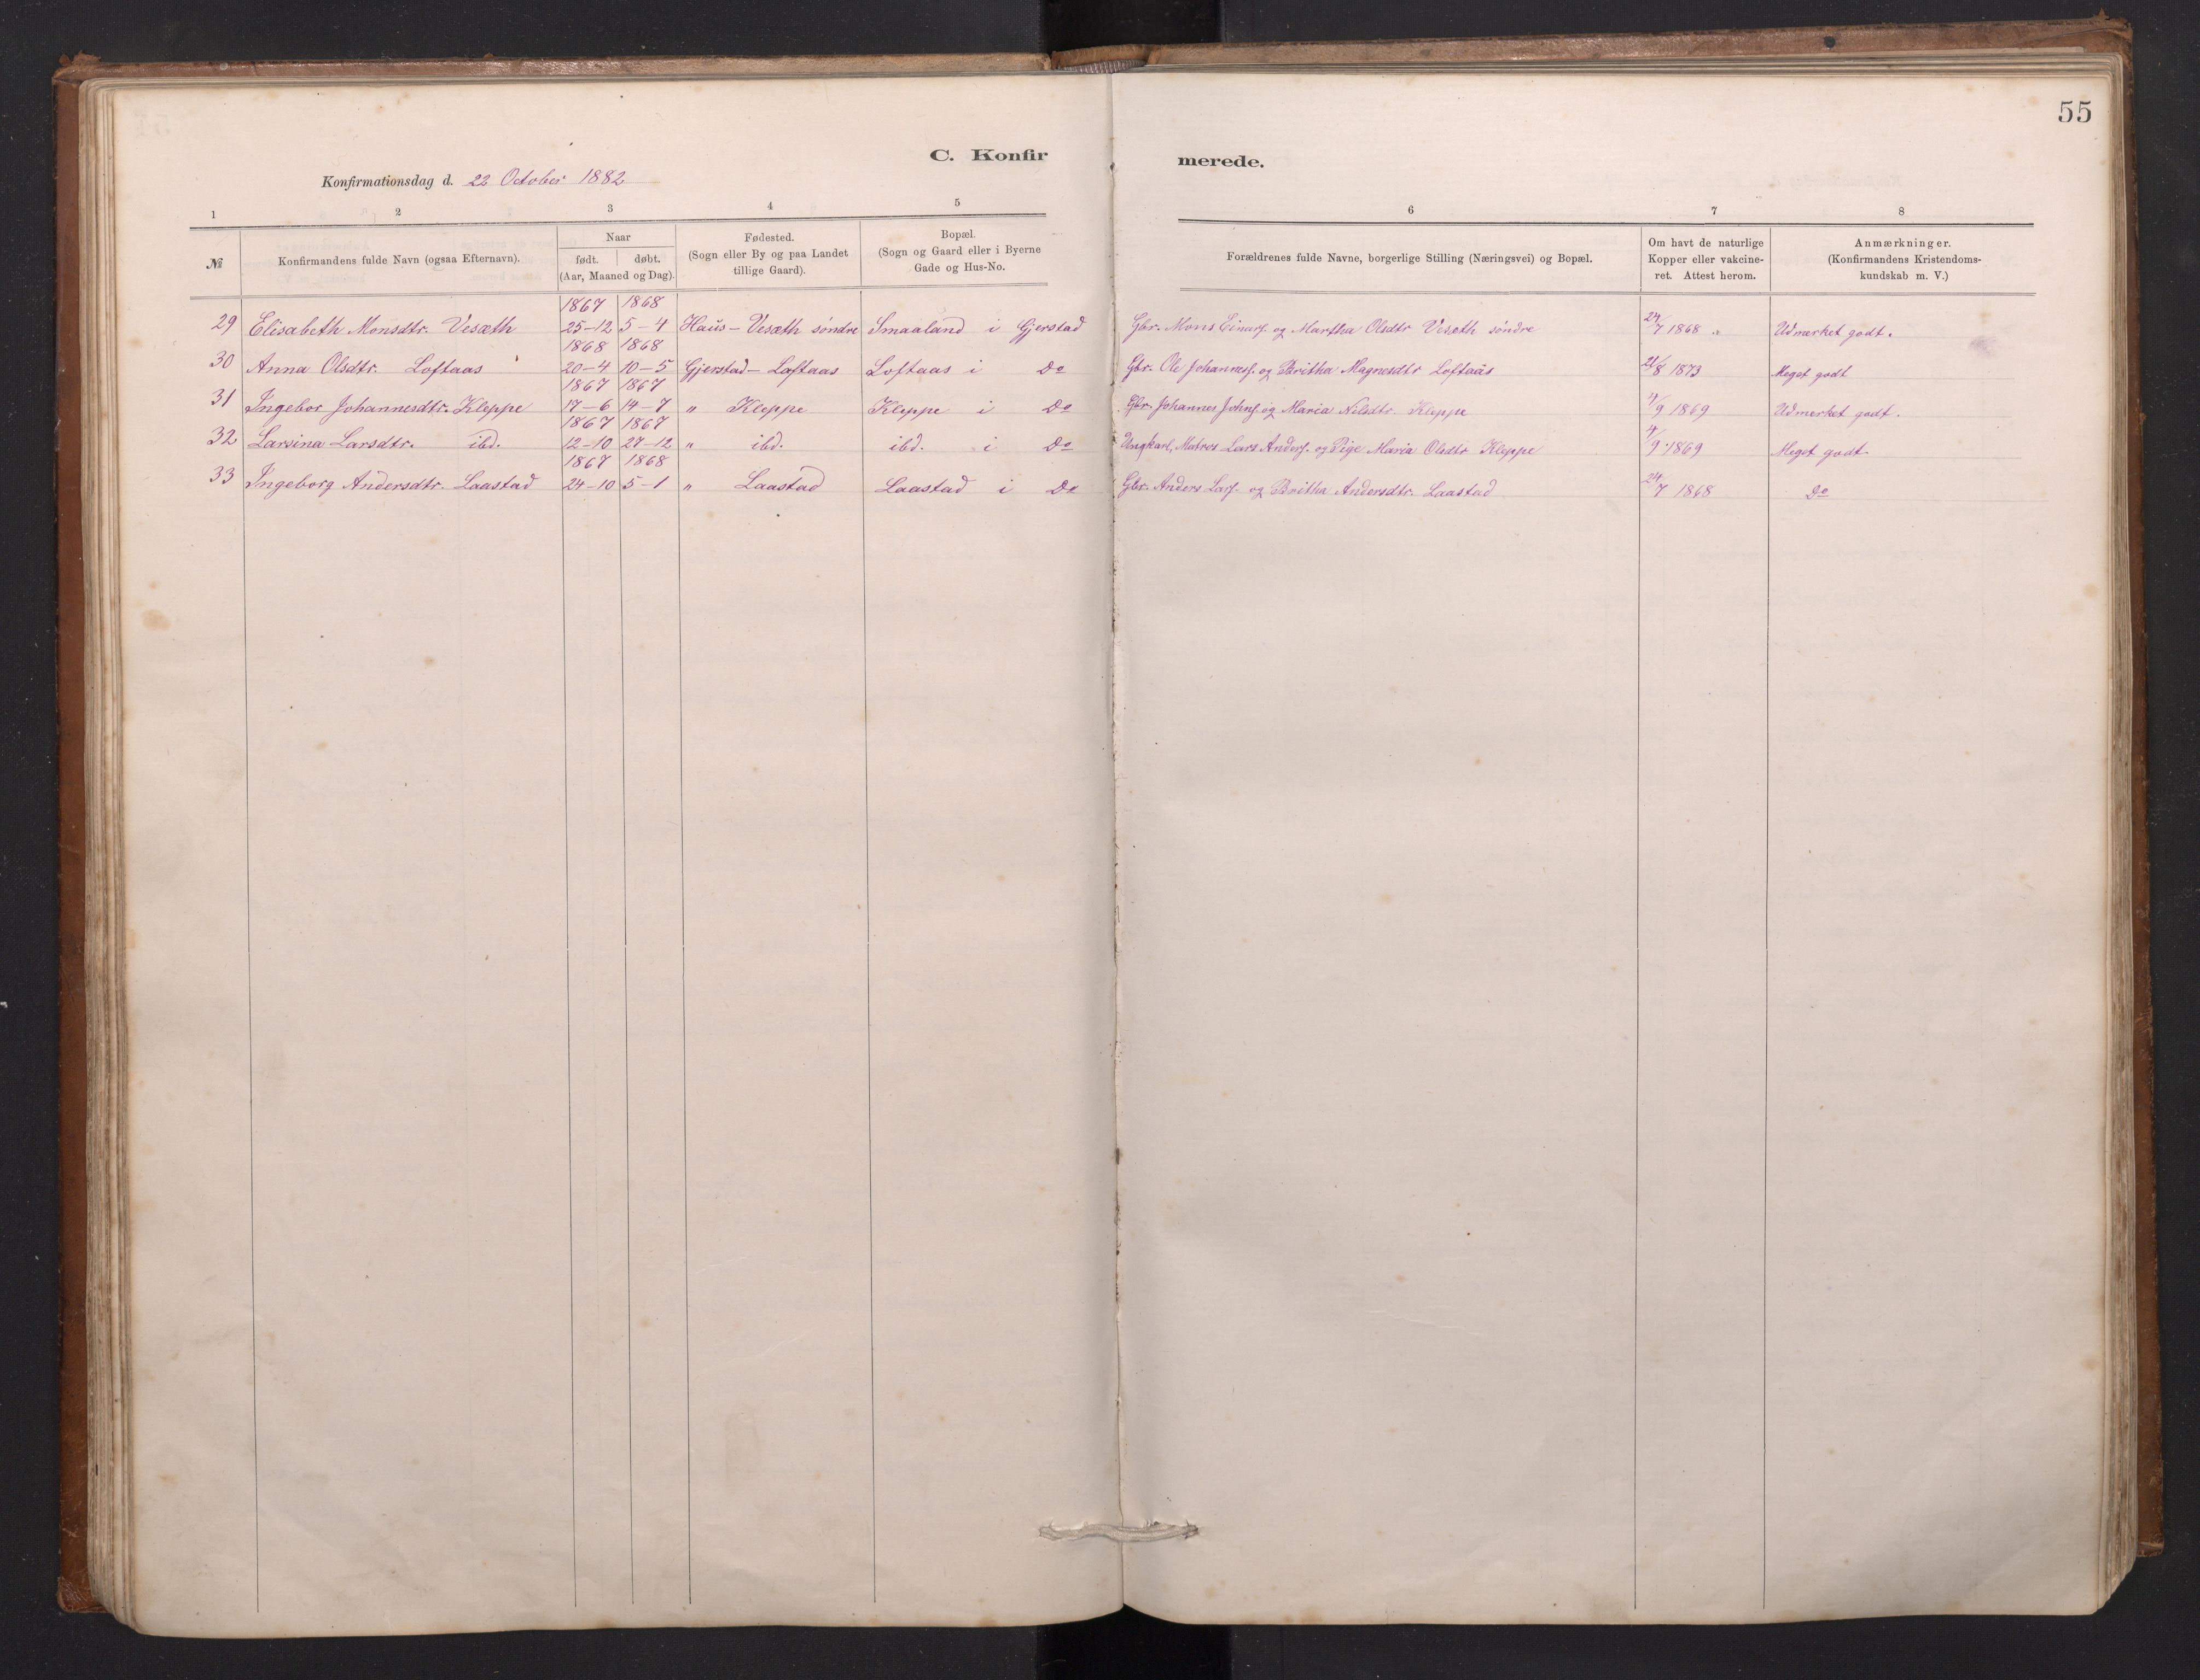 55
C. Konfirmerede.
Konfirmationsdag d. 22 October 1882
1 2 3 4 5 6 7 8
№ Konfirmandens fulde Navn (ogsaa Efternavn). Naar født. døbt. (Aar, Maaned og Dag). Fødested. (Sogn eller By og paa Landet tillige Gaard). Bopæl. (Sogn og Gaard eller i Byerne Gade og Hus-No. Forældrenes fulde Navne, borgerlige Stilling (Næringsvei) og Bopæl. Om havt de naturlige Kopper eller vakcineret. Attest herom. Anmærkninger. (Konfirmandens Kristendomskundskab m. V.)
1867 1868
29 Elisabeth Monsdtr. Vesæth 25-12 5-4 Haus - Vesæth søndre Smaaland i Gjerstad Gbr. Mons Einars. og Martha Olsdtr Vesæth søndre 24/7 1868 Udmærket godt.
1868 1868
30 Anna Olsdtr. Loftaas 20-4 10-5 Gjerstad - Loftaas Loftaas i Do Gbr. Ole Johanness. og Britha Magnesdtr Loftaas 21/8 1873 Meget godt
1867 1867
31 Ingebor Johannesdtr. Kleppe 17-6 14-7 " Kleppe Kleppe i Do Gbr. Johannes Johns. og Maria Nilsdtr. Kleppe 4/9 1869 Udmerket godt.
1867 1867
32 Larsina Larsdtr. ibd. 12-10 27-12 " ibd. ibd. i Do Ungkarl, Matros Lars Anders. og Pige Maria Olsdtr Kleppe 4/9 1869 Meget godt.
1867 1868
33 Ingeborg Andersdtr. Laastad 24-10 5-1 " Laastad Laastad i Do Gbr. Anders Lars. og Britha Andersdtr. Laastad 24/7 1868 Do